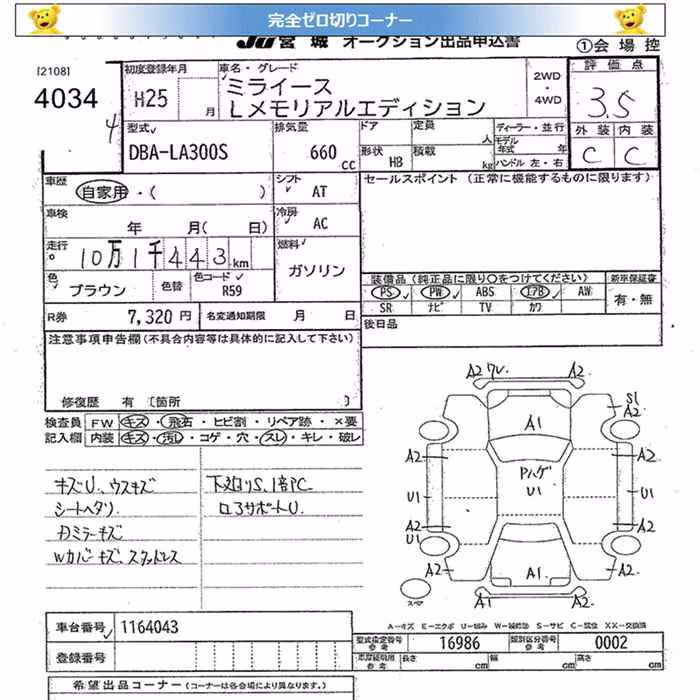 完全ゼロ切りコーナー
JU宮城 オークション出品申込書
①会場控
[2108]
4034
4
初度登録年月
H25 月
車名・グレード
ミライース
Lメモリアルエディション
2WD
・
4WD
評価点
3.5
外装 内装
C C
型式
DBA-LA300S
排気量
660 cc
ドア 定員 人
形状 HB 積載 kg
ディーラー・並行
モデル年式 年
ハンドル 左・右
車歴
自家用・( )
シフト
AT
セールスポイント (正常に機能するものに限ります)
車検
年 月( 日)
冷房
AC
走行
10万1千443km
燃料
ガソリン
色
ブラウン
色替
色コード
R59
装備品(純正品に限り○をつけてください)
新車保証書
PS PW ABS エアB AW
SR ナビ TV カワ
有・無
R券 7,320円
名変通知期限 月 日
後日品
注意事項申告欄(不具合内容等は具体的に記入して下さい)
修復歴 有 (箇所 )
検査員記入欄
FW キズ・飛石・ヒビ割・リペア跡・×要
内装 キズ・汚れ・コゲ・穴・スレ・キレ・破レ
キズU、ウスキズ
シートヘタリ
カミラーキズ
Wカバーキズ、スタッドレス
下廻りS、1部PC
コアサポートU
A2 ワレ A2
S1
A2
A1
A2 A2
Pハゲ
U1
U1 U1
A2 A2
U1
A2 A2
A1
A1 A2
スペア
A-キズ E-エクボ U-凹み W-補修跡 S-サビ C-腐食 XX-交換済
車台番号 1164043
登録番号
型式指定番号 参考 16986
類別区分番号 参考 0002
長さ cm 幅 cm 高さ cm
希望出品コーナー (コーナーは各会場により異なります。)